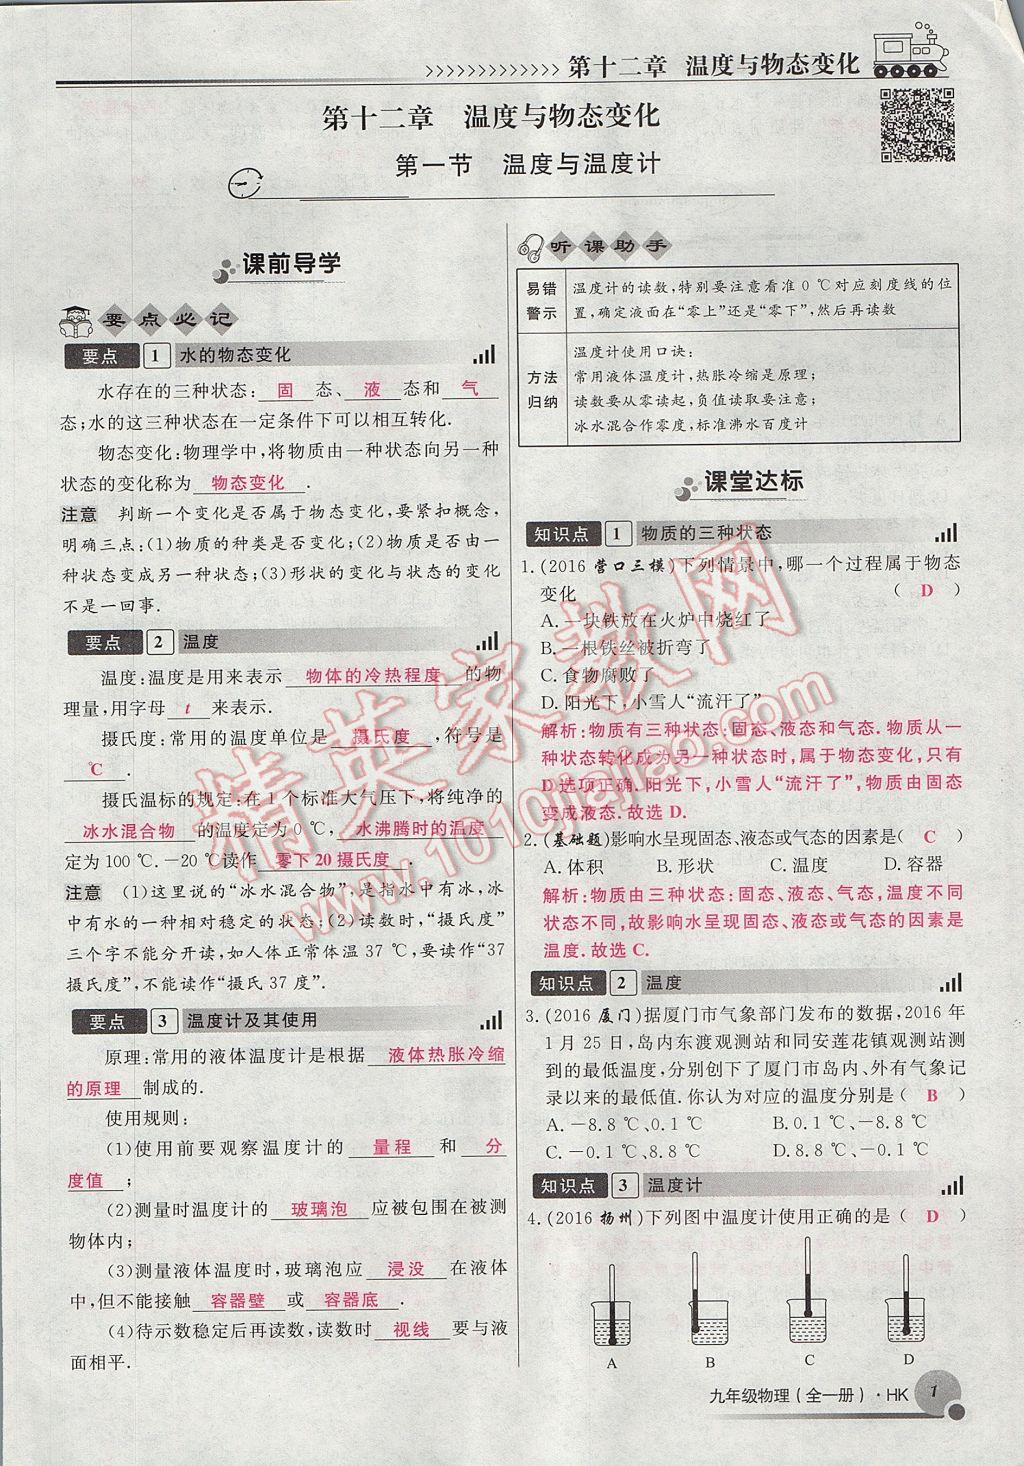 第十二章 温度与物态变化
第十二章 温度与物态变化
第一节 温度与温度计
课前导学
要点必记
要点 1 水的物态变化
水存在的三种状态: 固 态、 液 态和 气
态;水的这三种状态在一定条件下可以相互转化.
物态变化:物理学中,将物质由一种状态向另一种
状态的变化称为 物态变化 .
注意 判断一个变化是否属于物态变化,要紧扣概念,
明确三点:(1)物质的种类是否变化;(2)物质由一种
状态变成另一种状态;(3)形状的变化与状态的变化
不是一回事.
要点 2 温度
温度:温度是用来表示 物体的冷热程度 的物
理量,用字母 t 来表示.
摄氏度:常用的温度单位是 摄氏度 ,符号是
℃ .
摄氏温标的规定:在1个标准大气压下,将纯净的
冰水混合物 的温度定为0 ℃, 水沸腾时的温度
定为100 ℃.-20 ℃读作 零下20摄氏度 .
注意 (1)这里说的“冰水混合物”,是指水中有冰,冰
中有水的一种相对稳定的状态;(2)读数时,“摄氏度”
三个字不能分开读,如人体正常体温37 ℃,要读作“37
摄氏度”,不能读作“摄氏37度”.
要点 3 温度计及其使用
原理:常用的液体温度计是根据 液体热胀冷缩
的原理 制成的.
使用规则:
(1)使用前要观察温度计的 量程 和 分
度值 ;
(2)测量时温度计的 玻璃泡 应被包围在被测
物体内;
(3)测量液体温度时,玻璃泡应 浸没 在液体
中,但不能接触 容器壁 或 容器底 .
(4)待示数稳定后再读数,读数时 视线 要与液
面相平.
听课助手
易错警示 温度计的读数,特别要注意看准0 ℃对应刻度线的位
置,确定液面在“零上”还是“零下”,然后再读数
方法归纳 温度计使用口诀:
常用液体温度计,热胀冷缩是原理;
读数要从零读起,负值读取要注意;
冰水混合作零度,标准沸水百度计
课堂达标
知识点 1 物质的三种状态
1.(2016 营口三模)下列情景中,哪一个过程属于物态
变化 ( D )
A.一块铁放在火炉中烧红了
B.一根铁丝被折弯了
C.食物腐败了
D.阳光下,小雪人“流汗了”
解析:物质有三种状态:固态、液态和气态.物质从一
种状态转化成为另一种状态时,属于物态变化,只有
D选项正确.阳光下,小雪人“流汗了”,物质由固态
变成液态.故选 D.
2.(基础题)影响水呈现固态、液态或气态的因素是( C )
A.体积 B.形状 C.温度 D.容器
解析:物质由三种状态:固态、液态、气态,温度不同
状态不同,故影响水呈现固态、液态或气态的因素是
温度.故选 C.
知识点 2 温度
3.(2016 厦门)据厦门市气象部门发布的数据,2016年
1月25日,岛内东渡观测站和同安莲花镇观测站测
到的最低温度,分别创下了厦门市岛内、外有气象记
录以来的最低值.你认为对应的温度分别是( B )
A.-8.8 ℃、0.1 ℃ B.0.1 ℃、-8.8 ℃
C.-0.1 ℃、8.8 ℃ D.8.8 ℃、-0.1 ℃
知识点 3 温度计
4.(2016 扬州)下列图中温度计使用正确的是( D )
A B C D
九年级物理(全一册)·HK 1
精英家教网
www.1010jiajiao.com